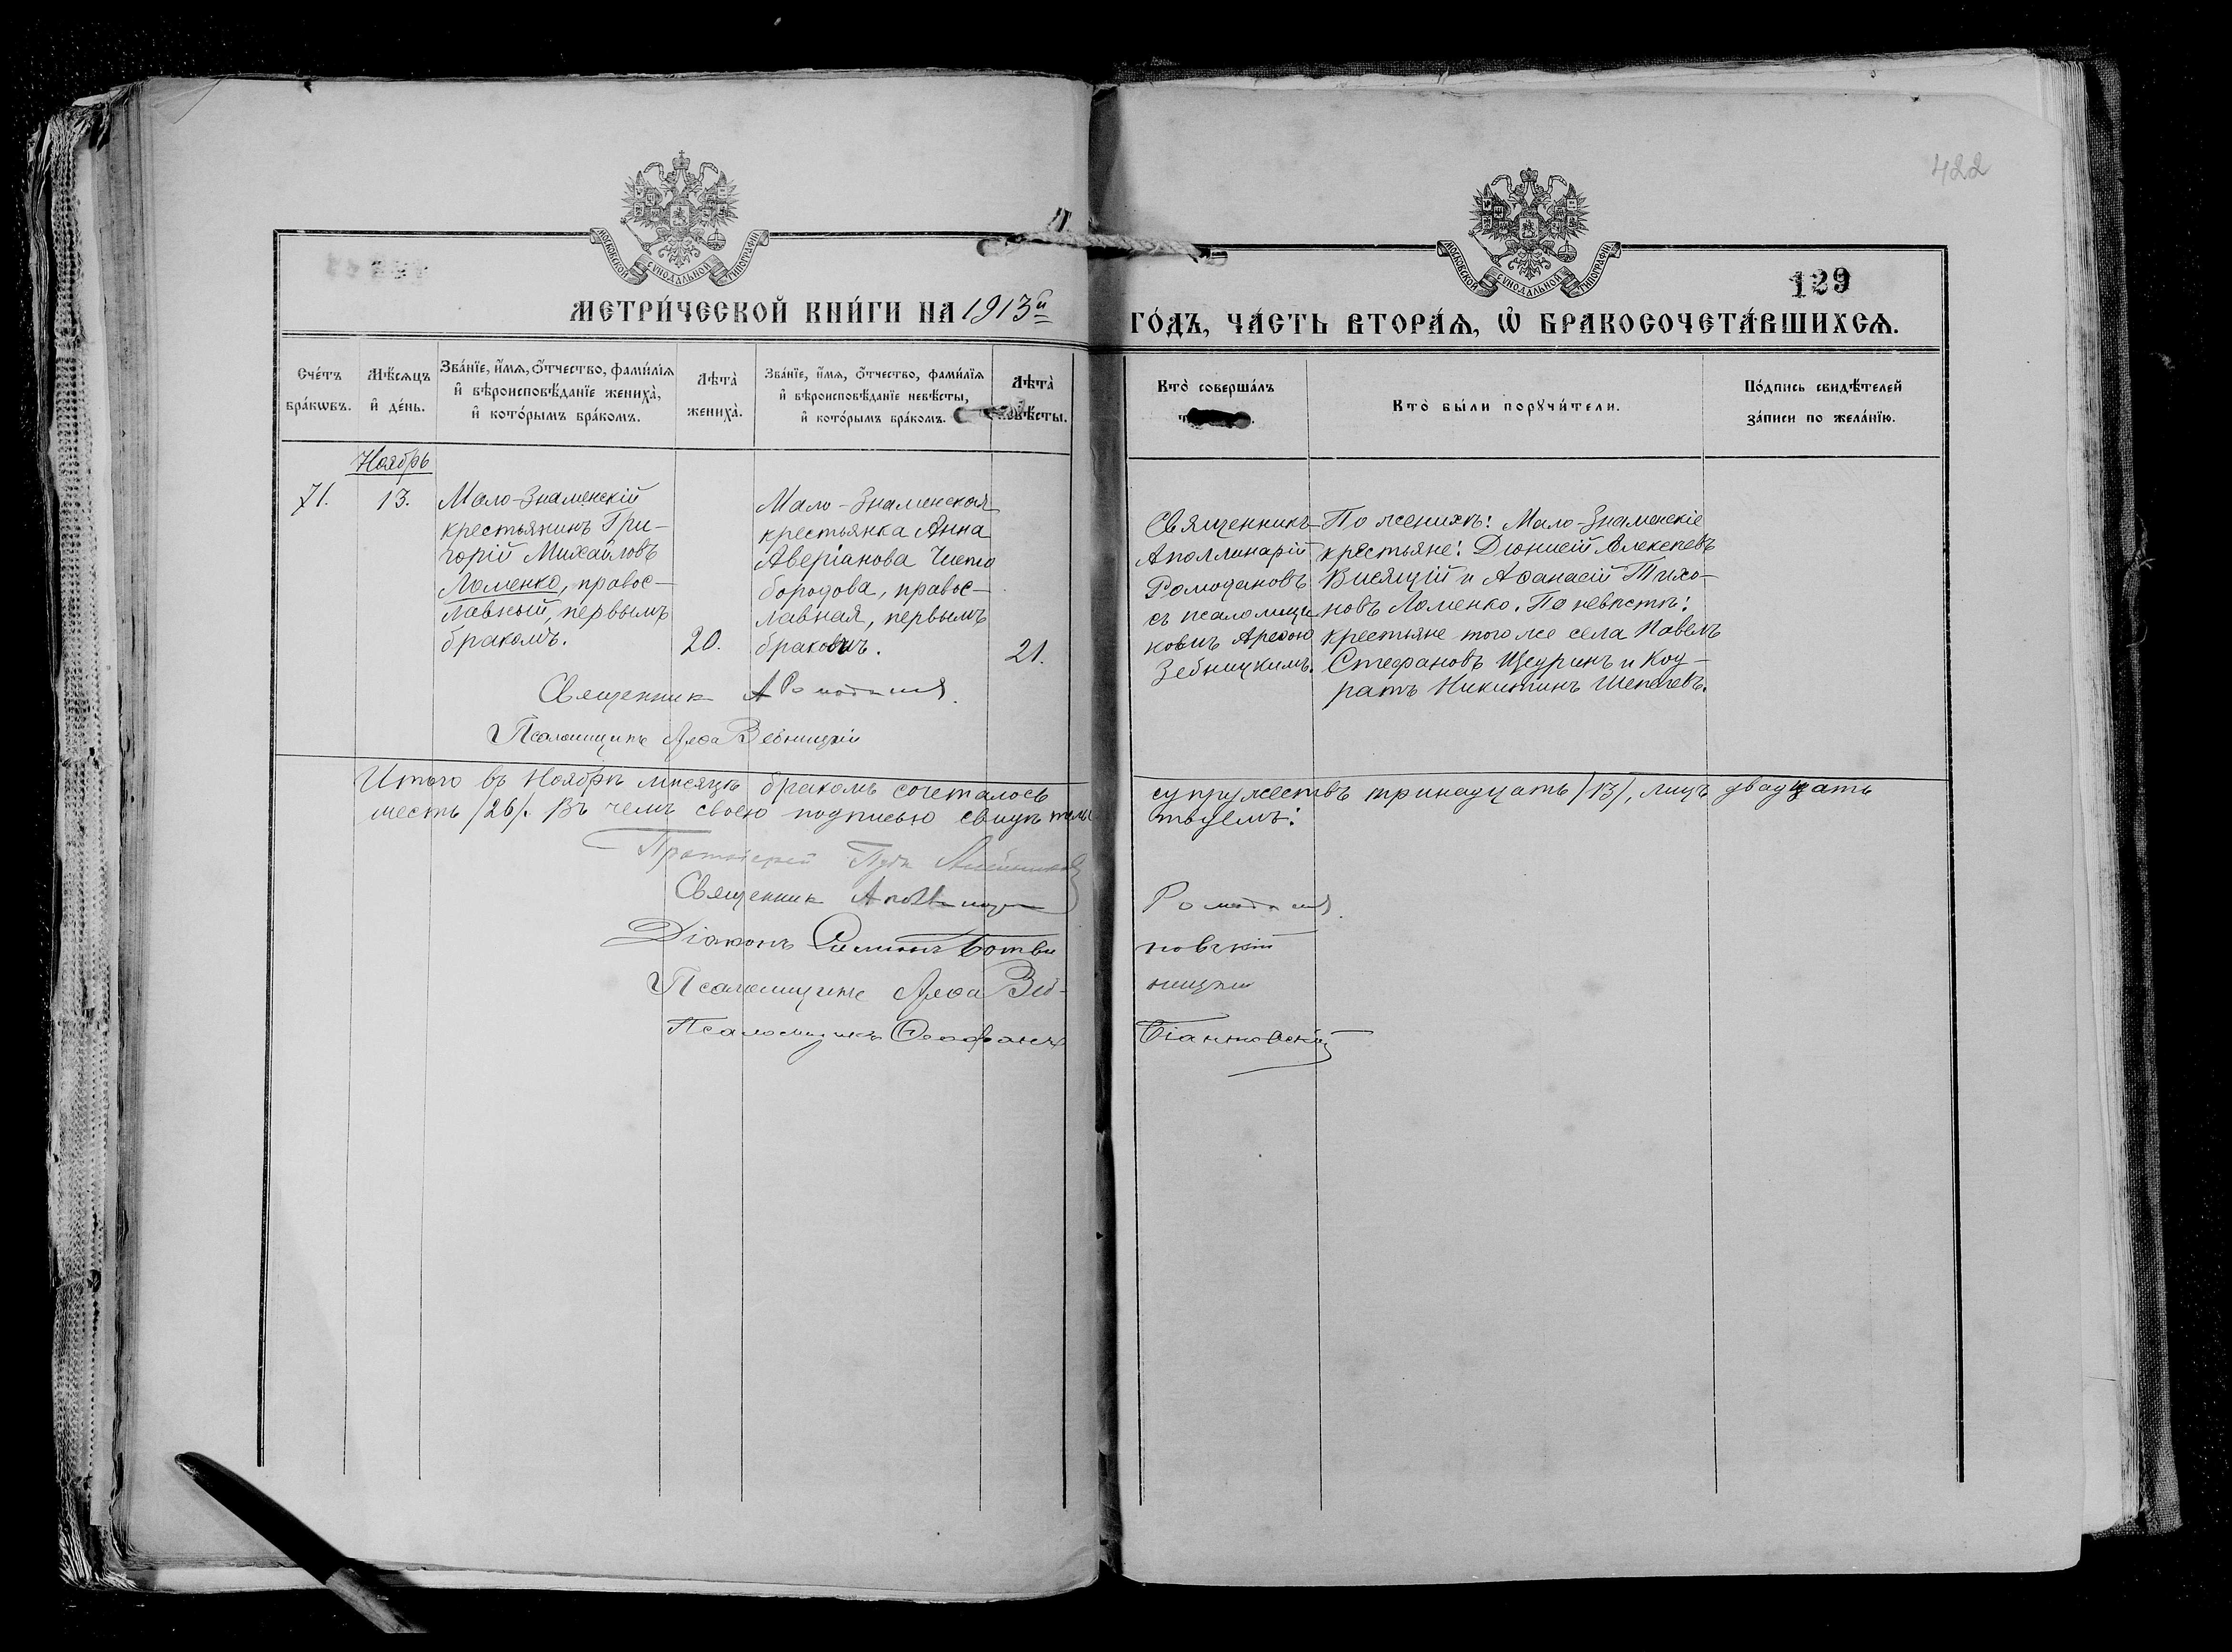 422
129
МОСКОВСКОЙ СѴНОДАЛЬНОЙ ТИПОГРАФІИ
МОСКОВСКОЙ СѴНОДАЛЬНОЙ ТИПОГРАФІИ
МЕТРИ́ЧЕСКОЙ КНИ́ГИ НА 1913й ГО́ДЪ, ЧА́СТЬ ВТОРА́Ѧ, Ѡ҆ БРАКОСОЧЕТА́ВШИХСѦ.
Сче́тъ бра́кѡвъ.
Мѣ́сѧцъ и҆ де́нь.
Зва́нїе, и҆́мѧ, ѻ҆́тчество, фами́лїѧ и҆ вѣроисповѣ́данїе жениха̀, и҆ кото́рымъ бра́комъ.
Лѣта̀ жениха̀.
Зва́нїе, и҆́мѧ, ѻ҆́тчество, фами́лїѧ и҆ вѣроисповѣ́данїе невѣ́сты, и҆ кото́рымъ бра́комъ.
Лѣта̀ невѣ́сты.
Кто̀ соверша́лъ
Кто̀ бы́ли порꙋчи́тели.
По́дпись свидѣ́телей за́писи по жела́нїю.
Ноябрь
71.
13.
Мало-Знаменскій
крестьянинъ Гри-
горій Михайловъ
Ломенко, правос-
лавный, первымъ
бракомъ.
20.
Мало-Знаменская
крестьянка Анна
Аверіанова Чисто
бородова, правос-
лавная, первымъ
бракомъ.
21.
Священникъ
Аполлинарій
Ромодановъ
съ псаломщи
комъ Арефою
Зебницкимъ.
По женихѣ: Мало-Знаменскіе
крестьяне: Діонисій Алексѣевъ
Висящій и Афанасій Тихо-
новъ Ломенко. По невѣстѣ:
крестьяне того же села Павелъ
Стефановъ Щедринъ и Код-
ратъ Никитинъ Шепелевъ.
Священник А Ромодановъ.
Псаломщикъ Арефа Зебницкій
Итого въ Ноябрѣ мѣсяцѣ бракомъ сочеталось супружествъ тринадцать /13/, лицъ двадцать
шесть /26/. Въ чемъ своею подписью свидѣтельствуемъ:
Протоіерей
Священник Аполлинарій Ромодановъ.
Діаконъ Симеонъ Ботвиновскій
Псаломщикъ Арефа Зебницкій
Псаломщикъ Ѳеофанъ